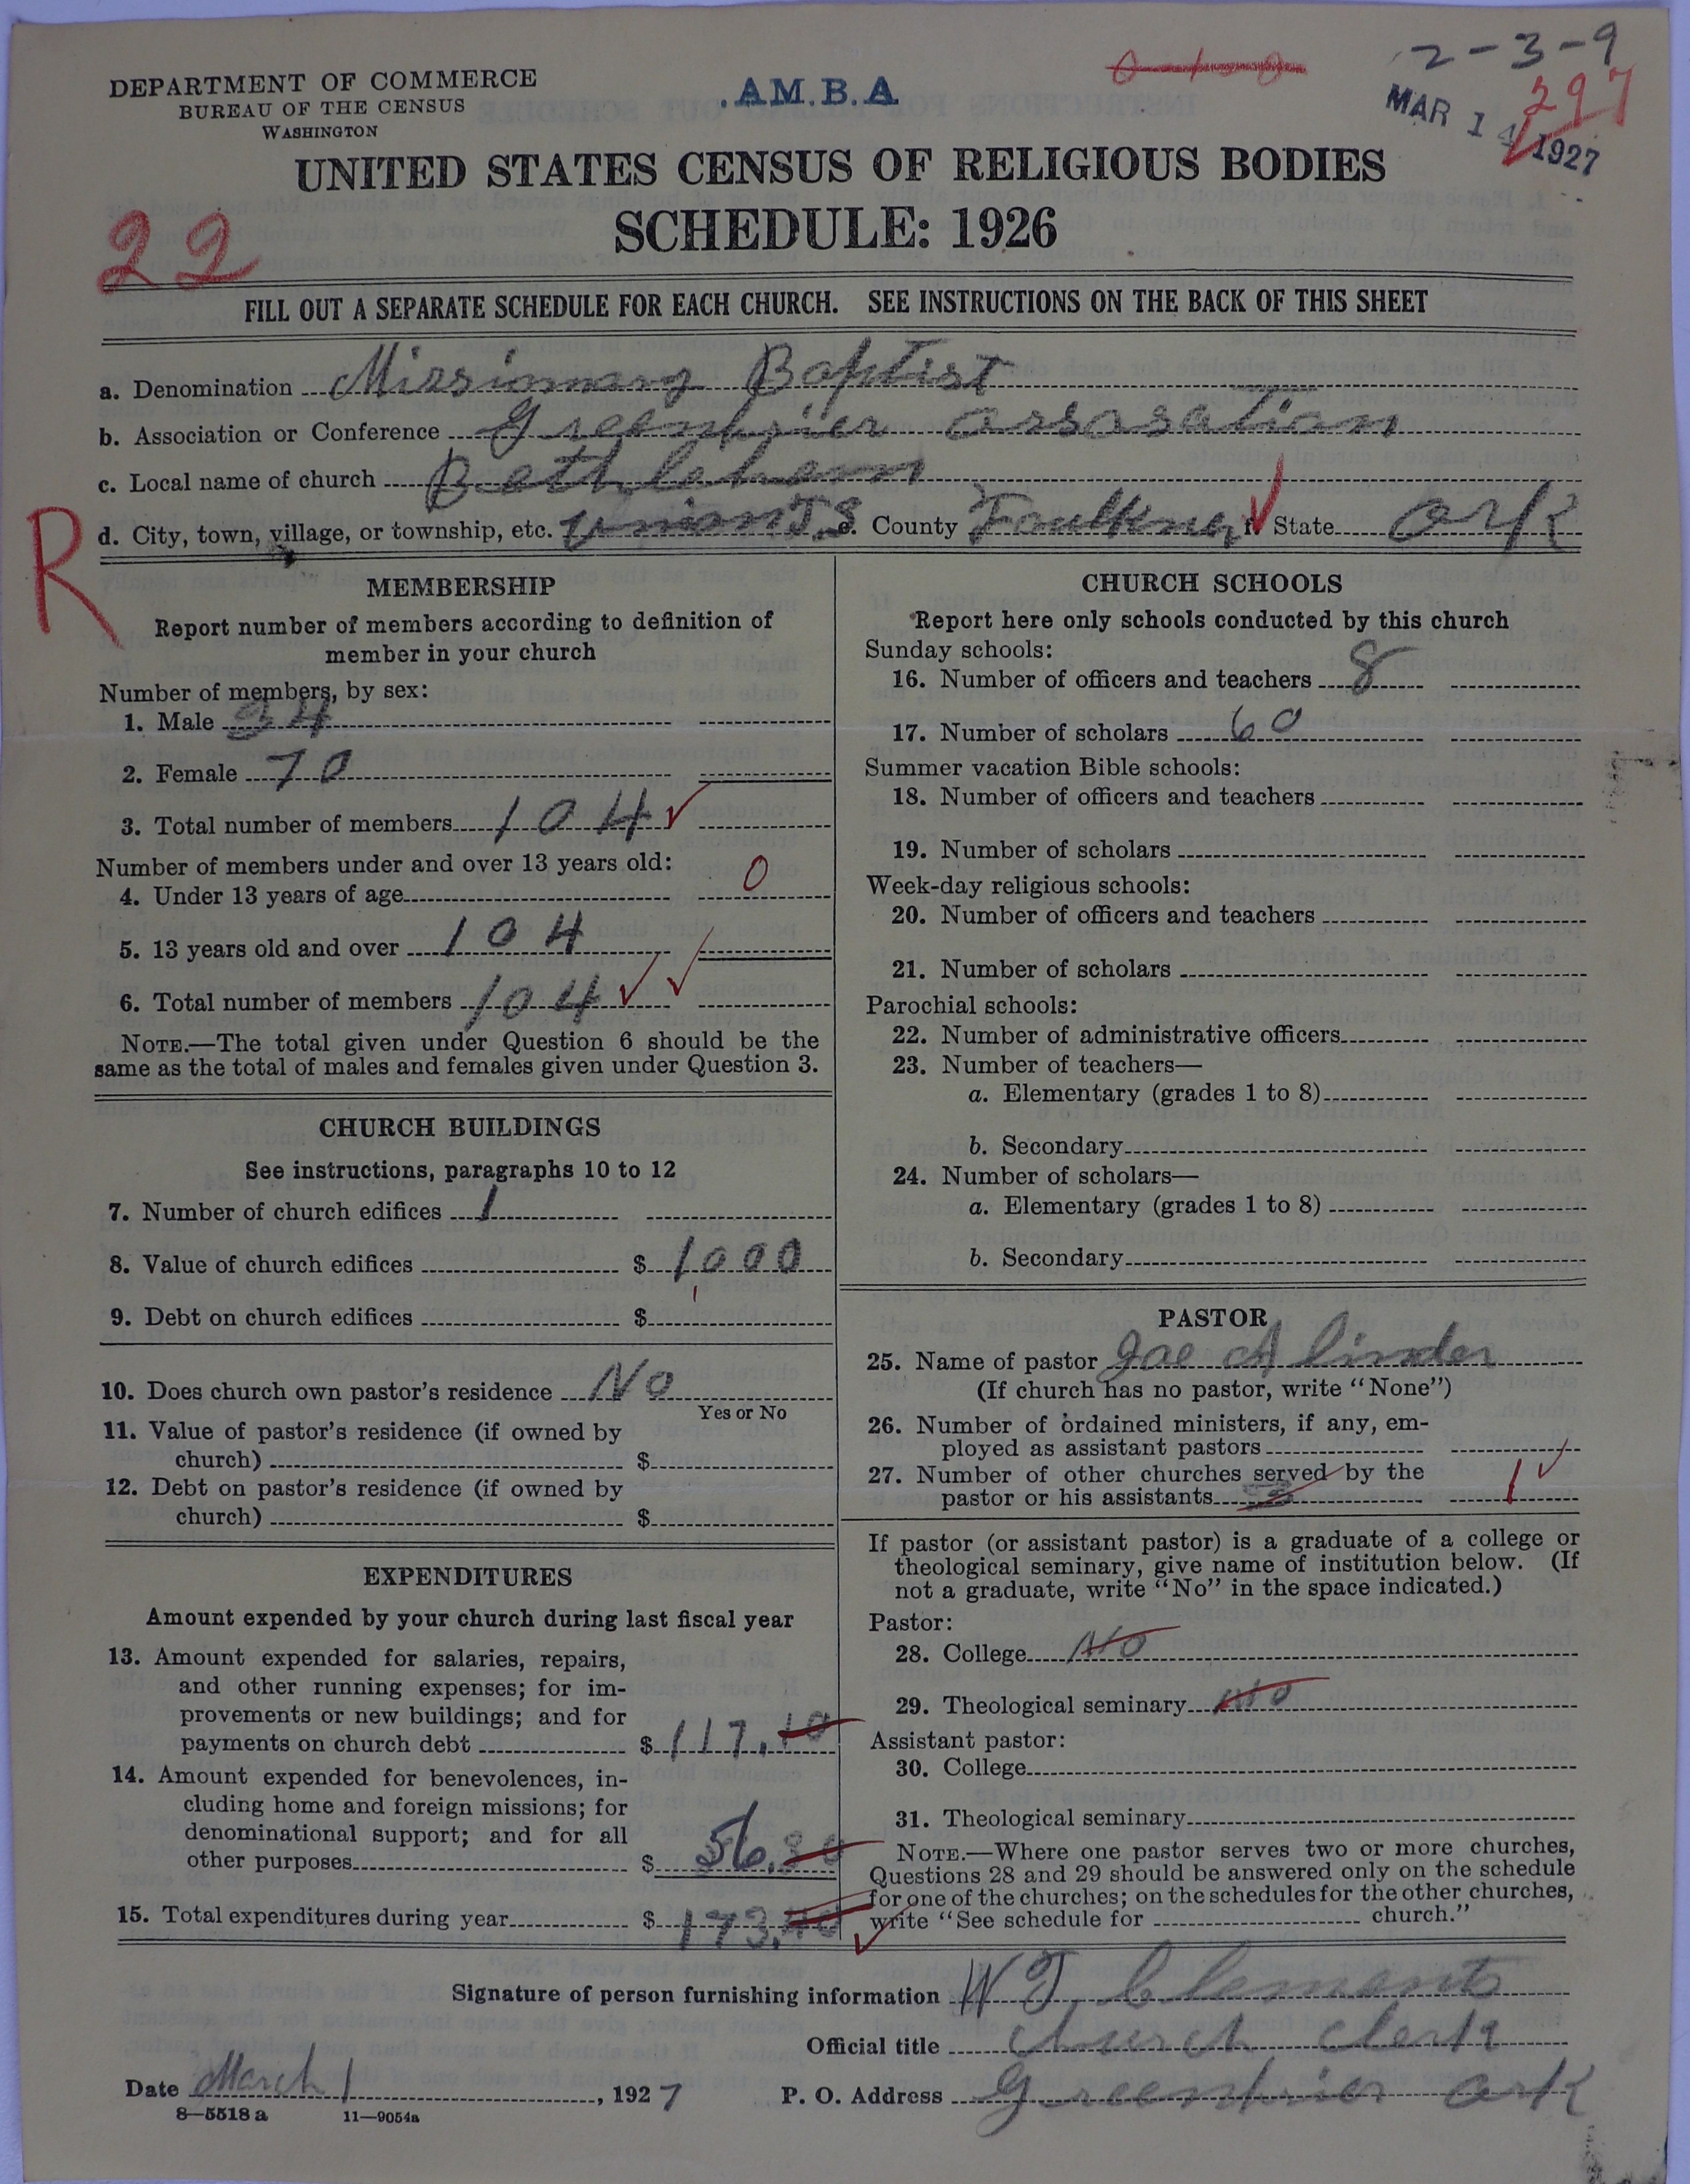 2-3-9
DEPARTMENT OF COMMERCE
BUREAU OF THE CENSUS
WASHINGTON
.AM.B.A
297
MAR 14 1927
UNITED STATES CENSUS OF RELIGIOUS BODIES
SCHEDULE: 1926
22
FILL OUT A SEPARATE SCHEDULE FOR EACH CHURCH. SEE INSTRUCTIONS ON THE BACK OF THIS SHEET
a. Denomination Missionary Baptist
b. Association or Conference Greenbrier assosation
c. Local name of church Bethlehem
R
d. City, town, village, or township, etc. Union T.S e. County Faulkner f. State Ark
MEMBERSHIP
Report number of members according to definition of
member in your church
Number of members, by sex:
1. Male 34
2. Female 70
3. Total number of members 104
Number of members under and over 13 years old:
4. Under 13 years of age 0
5. 13 years old and over 104
6. Total number of members 104
NOTE.—The total given under Question 6 should be the
same as the total of males and females given under Question 3.
CHURCH BUILDINGS
See instructions, paragraphs 10 to 12
7. Number of church edifices 1
8. Value of church edifices $ 1000
9. Debt on church edifices $
10. Does church own pastor's residence No
Yes or No
11. Value of pastor's residence (if owned by
church) $
12. Debt on pastor's residence (if owned by
church) $
EXPENDITURES
Amount expended by your church during last fiscal year
13. Amount expended for salaries, repairs,
and other running expenses; for im-
provements or new buildings; and for
payments on church debt $ 117.10
14. Amount expended for benevolences, in-
cluding home and foreign missions; for
denominational support; and for all
other purposes $ 56.30
15. Total expenditures during year $ 173.40
CHURCH SCHOOLS
Report here only schools conducted by this church
Sunday schools:
16. Number of officers and teachers 8
17. Number of scholars 60
Summer vacation Bible schools:
18. Number of officers and teachers
19. Number of scholars
Week-day religious schools:
20. Number of officers and teachers
21. Number of scholars
Parochial schools:
22. Number of administrative officers
23. Number of teachers—
a. Elementary (grades 1 to 8)
b. Secondary
24. Number of scholars—
a. Elementary (grades 1 to 8)
b. Secondary
PASTOR
25. Name of pastor Joe A Linder
(If church has no pastor, write "None")
26. Number of ordained ministers, if any, em-
ployed as assistant pastors
27. Number of other churches served by the
pastor or his assistants 3 1
If pastor (or assistant pastor) is a graduate of a college or
theological seminary, give name of institution below. (If
not a graduate, write "No" in the space indicated.)
Pastor:
28. College No
29. Theological seminary No
Assistant pastor:
30. College
31. Theological seminary
NOTE.—Where one pastor serves two or more churches,
Questions 28 and 29 should be answered only on the schedule
for one of the churches; on the schedules for the other churches,
write "See schedule for church."
Signature of person furnishing information W T Clements
Official title church clerk
Date March 1, 1927 P. O. Address Greenbrier Ark
8—5518 a 11—9054a